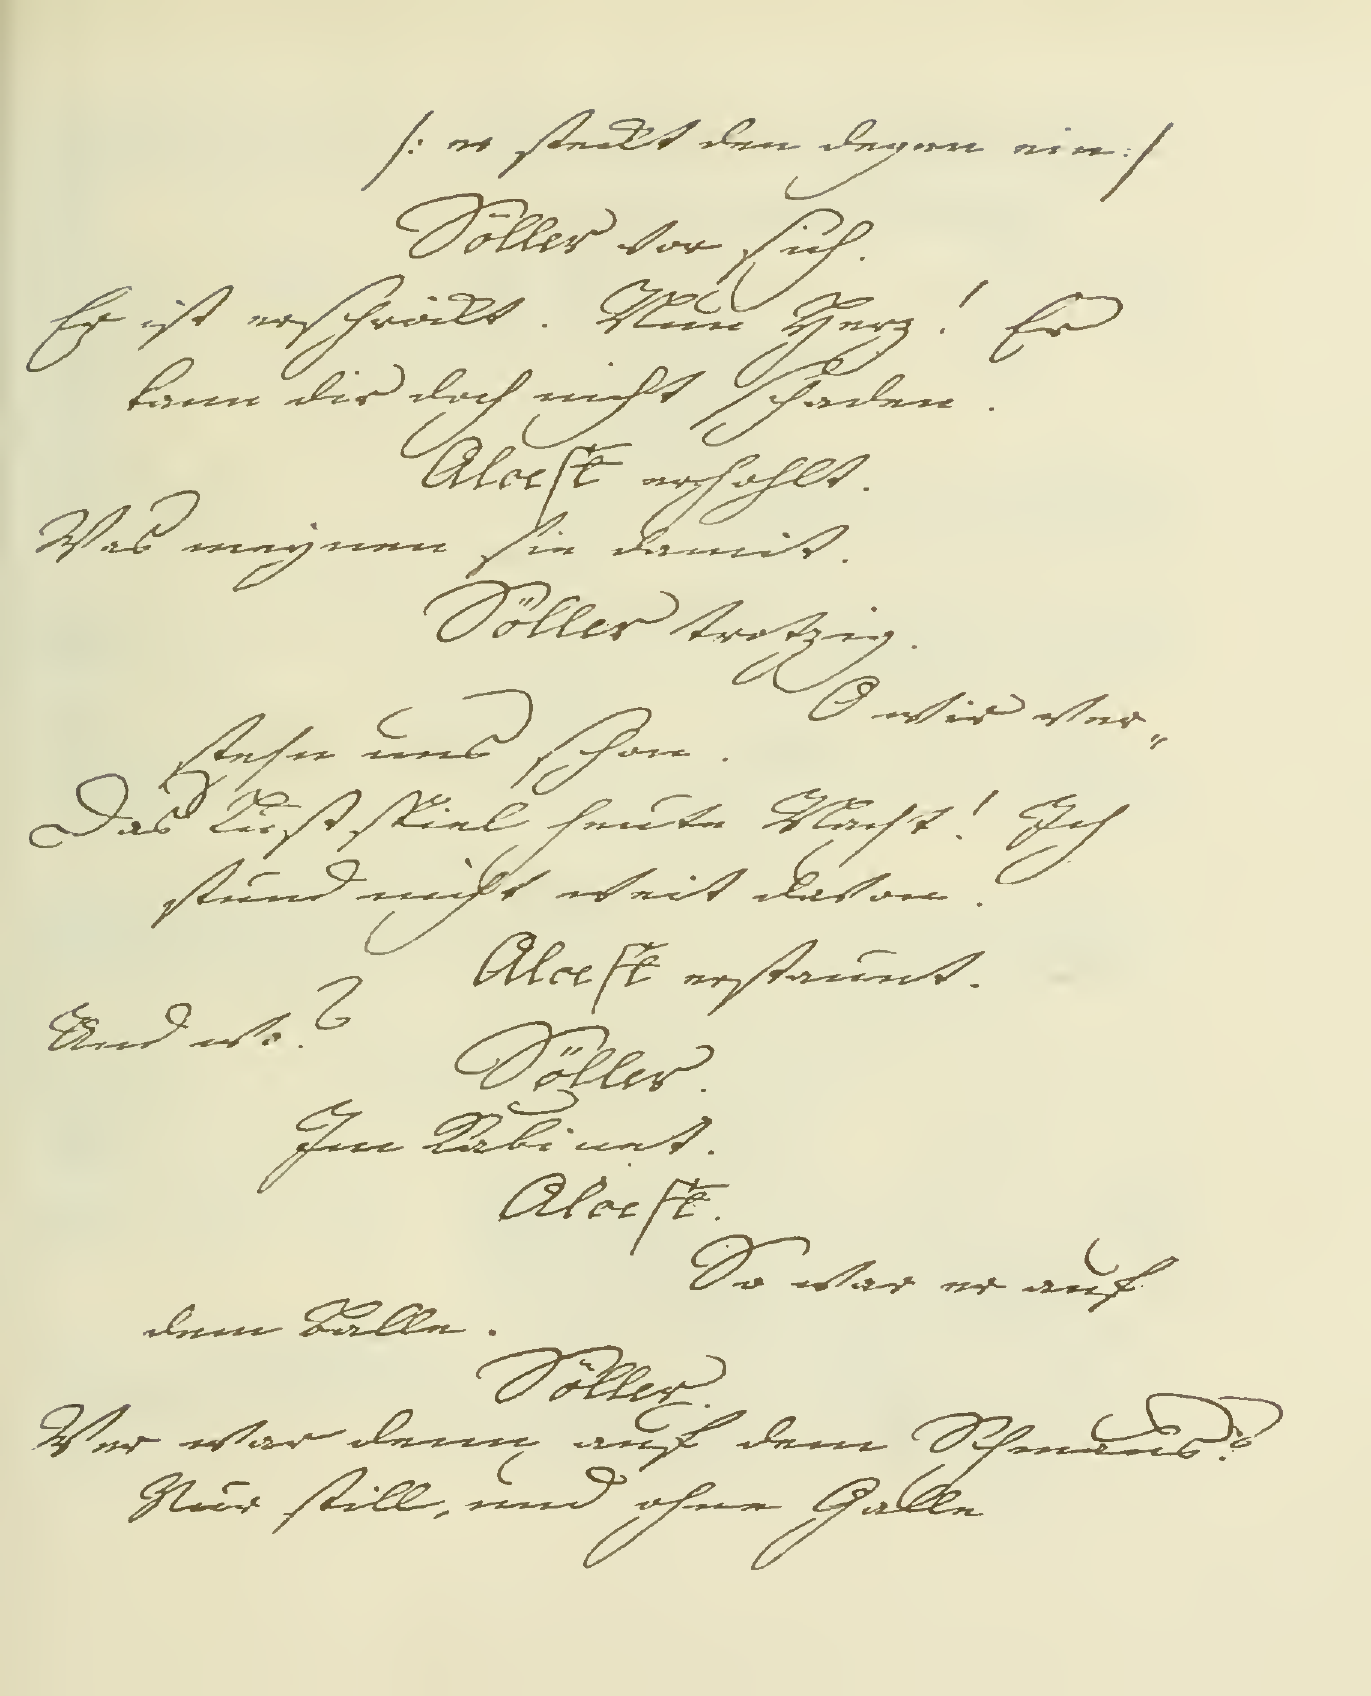 /: er steckt den degen ein :/
Söller vor sich.
Er ist erschröckt. Nun Herz! Er
kann dir doch nicht schaden.
Alceste erhohlt.
Was meynen sie damit.
Söller trotzig.
O wir ver„
stehn uns schon.
Das Lustspiel heute Nacht! Ich
stund nicht weit davon.
Alceste erstaunt.
Und wo?
Söller.
Im Kabinet.
Alceste.
So war er auf
dem Balle.
Söller.
Wer war denn auf dem Schmaus?
Nur still, und ohne Galle